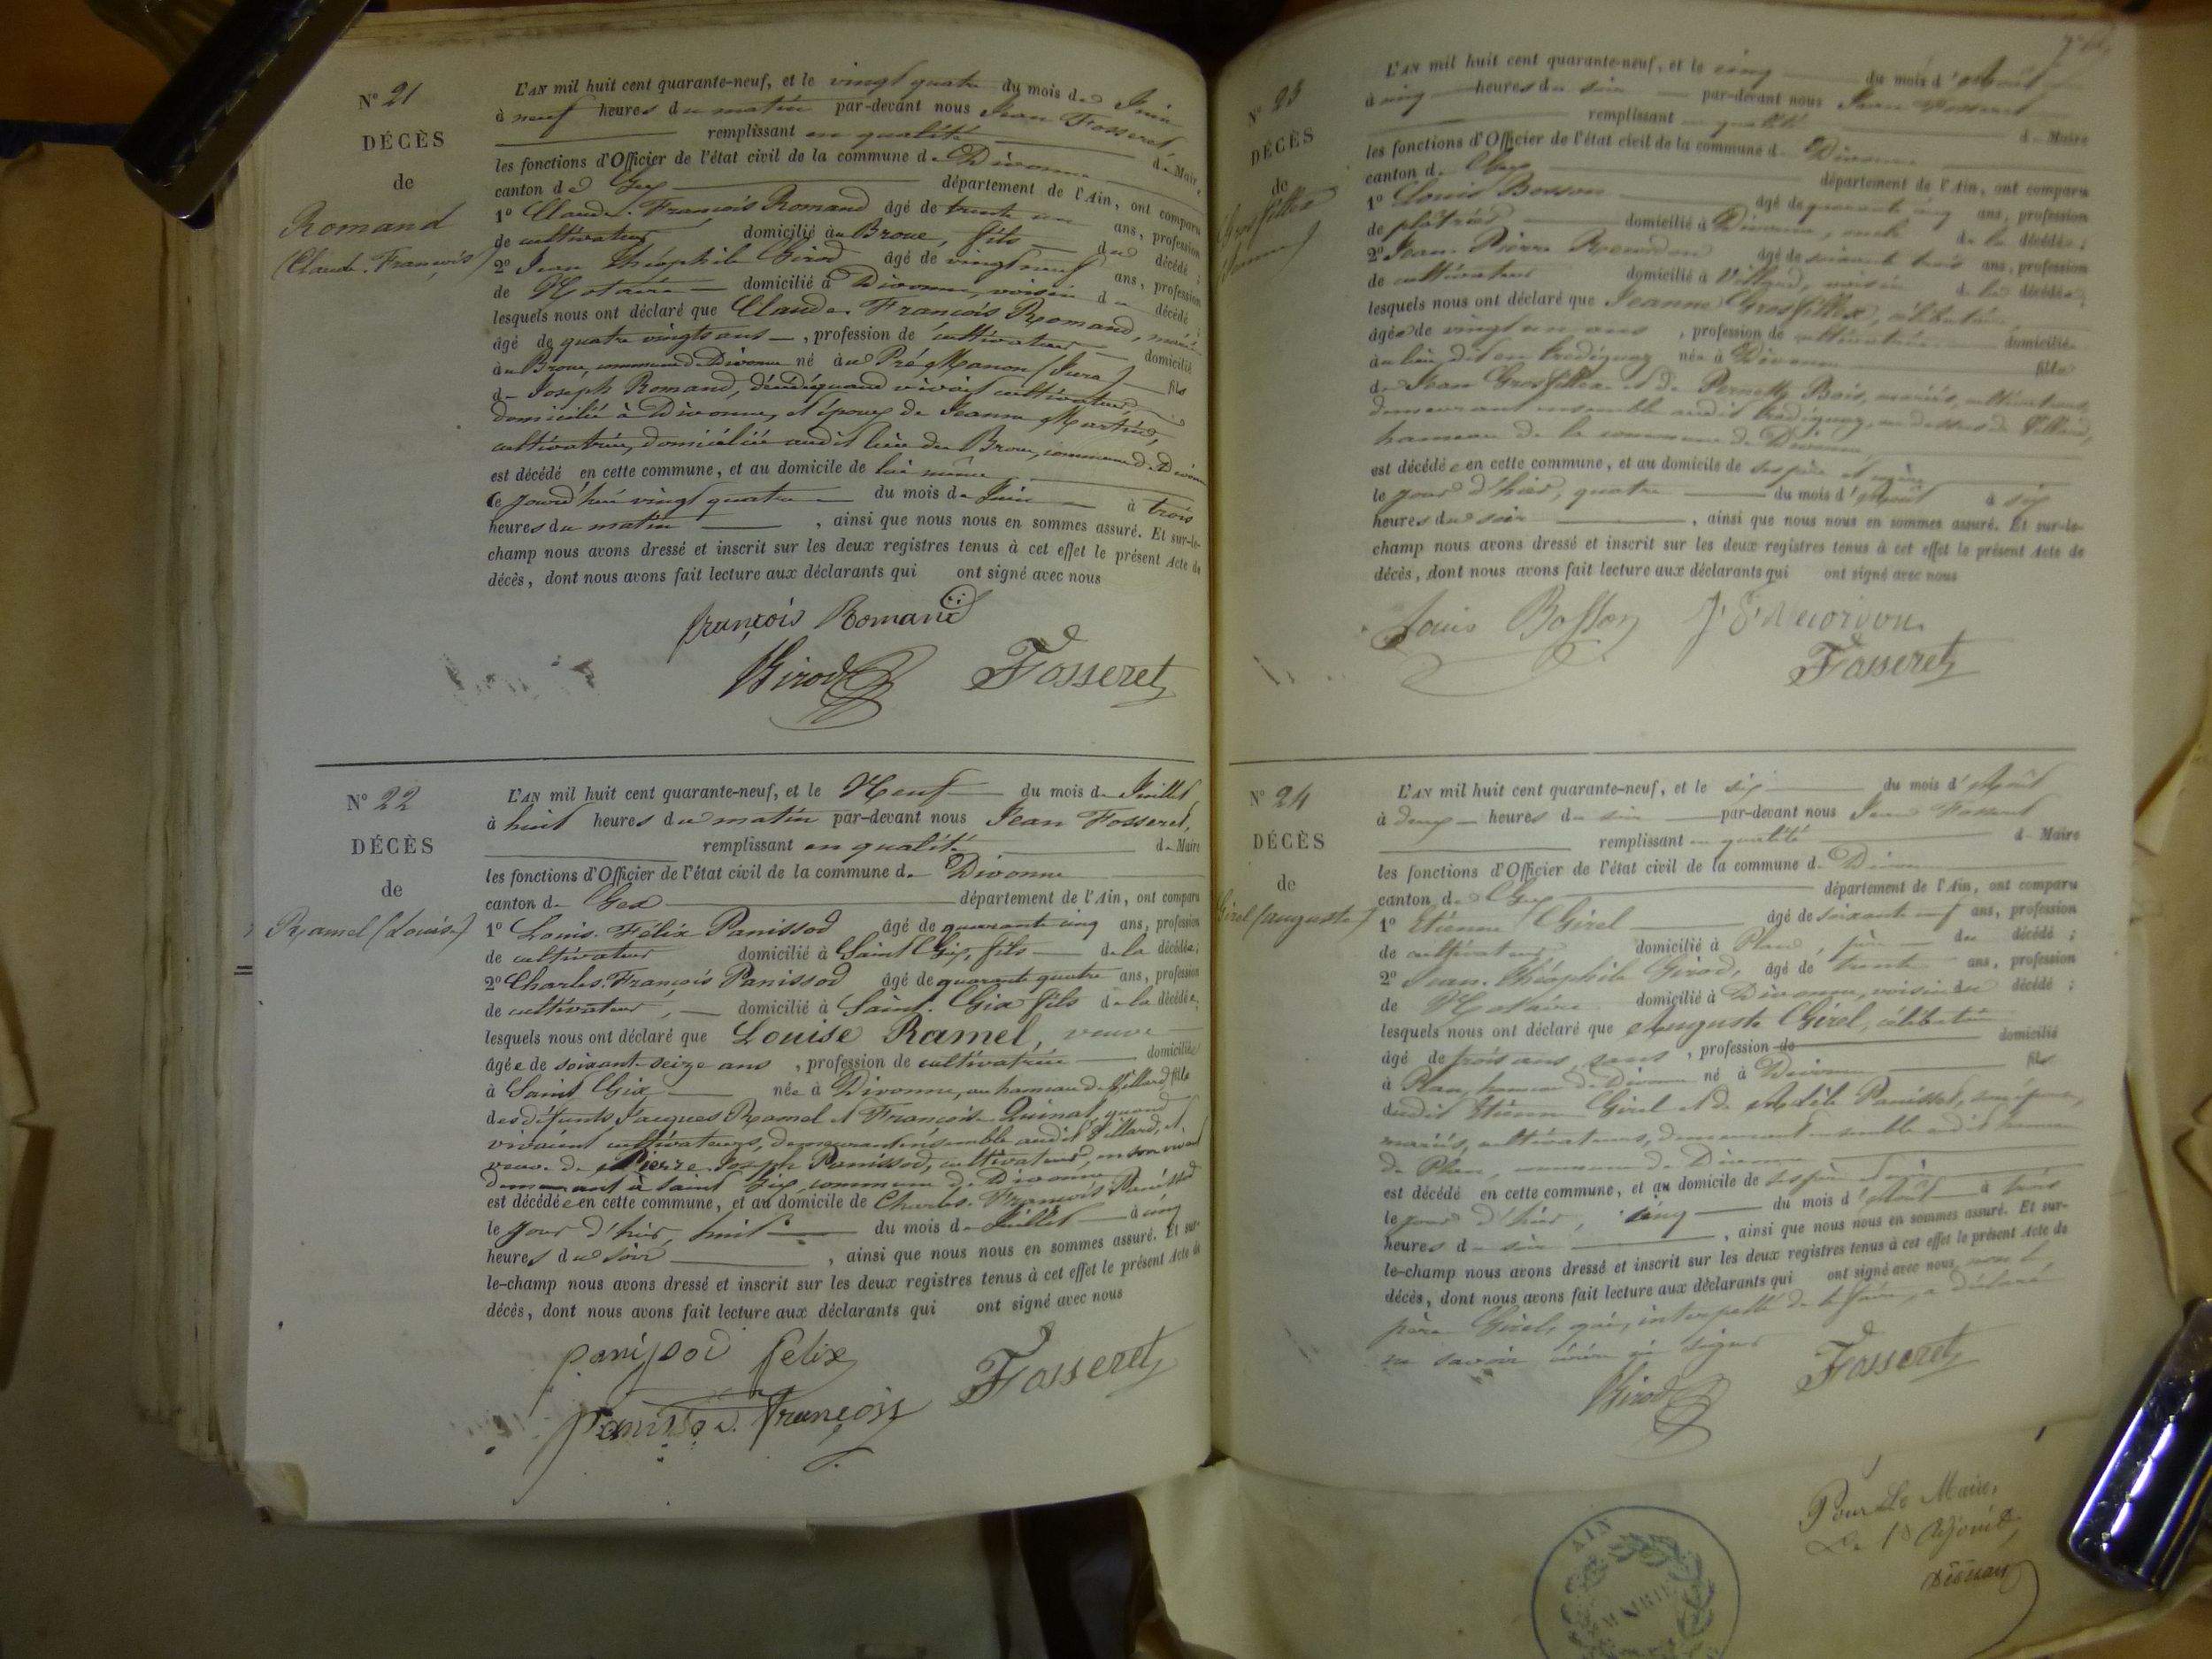 N° 21
DÉCÈS
de
Romand
(Claude François)
L'AN mil huit cent quarante-neuf, et le vingt quatre du mois de Juin
à neuf heures du matin par-devant nous Jean Fosseret
remplissant en qualité de Maire
les fonctions d'Officier de l'état civil de la commune de Divonne
canton de Gex département de l'Ain, ont comparu
1° Claude François Romand âgé de trente un ans, profession
de cultivateur domicilié au Broue, fils du décédé ;
2° Jean Théophile Girod âgé de vingt neuf ans, profession
de Notaire domicilié à Divonne, voisin du décédé ;
lesquels nous ont déclaré que Claude François Romand, marié
âgé de quatre vingts ans, profession de cultivateur domicilié
au Broue, commune de Divonne né au Pré Manon (Jura) fils
de Joseph Romand, décédé quand vivait cultivateur
domicilié à Divonne, et époux de Jeanne Martin,
cultivatrice, domiciliée audit lieu du Broue, commune de Divonne
est décédé en cette commune, et au domicile de lui même
ce jourd'hui vingt quatre du mois de Juin à trois
heures du matin, ainsi que nous nous en sommes assuré. Et sur-le-
champ nous avons dressé et inscrit sur les deux registres tenus à cet effet le présent Acte de
décès, dont nous avons fait lecture aux déclarants qui ont signé avec nous
françois Romand
Girod Fosseret
N° 22
DÉCÈS
de
Ramel (Louise)
L'AN mil huit cent quarante-neuf, et le Neuf du mois de Juillet
à huit heures du matin par-devant nous Jean Fosseret,
remplissant en qualité de Maire
les fonctions d'Officier de l'état civil de la commune de Divonne
canton de Gex département de l'Ain, ont comparu
1° Louis Félix Panissod âgé de quarante cinq ans, profession
de cultivateur domicilié à Saint Gix, fils de la décédée ;
2° Charles François Panissod âgé de quarante quatre ans, profession
de cultivateur, domicilié à Saint Gix fils de la décédée,
lesquels nous ont déclaré que Louise Ramel, veuve
âgée de soixante seize ans, profession de cultivatrice domiciliée
à Saint Gix née à Divonne, au hameau de Villard fille
des défunts Jacques Ramel et Françoise Quinat, quand
vivaient cultivateurs, demeurant ensemble audit Villard, et
veuve de Pierre Joseph Panissod, cultivateur, en son vivant
demeurant à Saint Gix commune de Divonne
est décédée en cette commune, et au domicile de Charles François Panissod
le jour d'hier, huit du mois de Juillet à cinq
heures du soir, ainsi que nous nous en sommes assuré. Et sur-
le-champ nous avons dressé et inscrit sur les deux registres tenus à cet effet le présent Acte de
décès, dont nous avons fait lecture aux déclarants qui ont signé avec nous
panissod felix
Panissod françois Fosseret
N° 23
DÉCÈS
de
Grosfillex
Jeanne
L'AN mil huit cent quarante-neuf, et le cinq du mois d'Août
à cinq heures du soir par-devant nous Jean Fosseret
remplissant en qualité de Maire
les fonctions d'Officier de l'état civil de la commune de Divonne
canton de Gex département de l'Ain, ont comparu
1° Louis Bosson âgé de quarante cinq ans, profession
de plâtrier domicilié à Divonne, oncle de la décédée ;
2° Jean Pierre âgé de soixante trois ans, profession
de cultivateur domicilié à Villard, voisin de la décédée ;
lesquels nous ont déclaré que Jeanne Grosfillex, célibataire
âgée de vingt un ans, profession de cultivatrice domiciliée
au lieu dit en née à Divonne fille
de Jean Grosfillex et de Pernette Bois, mariés, cultivateurs,
demeurant ensemble audit au dessus de Villard,
hameau de la commune de Divonne,
est décédée en cette commune, et au domicile de ses père et mère
le jour d'hier, quatre du mois d'Août à six
heures du soir, ainsi que nous nous en sommes assuré. Et sur-le-
champ nous avons dressé et inscrit sur les deux registres tenus à cet effet le présent Acte de
décès, dont nous avons fait lecture aux déclarants qui ont signé avec nous
Louis Bosson
Fosseret
N° 24
DÉCÈS
de
Girel (auguste)
L'AN mil huit cent quarante-neuf, et le six du mois d'Août
à deux heures du soir par-devant nous Jean Fosseret
remplissant en qualité de Maire
les fonctions d'Officier de l'état civil de la commune de Divonne
canton de Gex département de l'Ain, ont comparu
1° Etienne Girel âgé de soixante ans, profession
de cultivateur domicilié à Plan, père du décédé ;
2° Jean Théophile Girod, âgé de trente ans, profession
de Notaire domicilié à Divonne, voisin du décédé ;
lesquels nous ont déclaré que Auguste Girel, célibataire
âgé de trois ans, sans, profession de domicilié
à Plan, hameau de Divonne né à Divonne fils
dudit Etienne Girel et de Adèle Panissod, son épouse,
mariés, cultivateurs, demeurant ensemble audit hameau
de Plan, commune de Divonne
est décédé en cette commune, et au domicile de ses père et mère
le jour d'hier, cinq du mois d'Août à trois
heures du soir, ainsi que nous nous en sommes assuré. Et sur-
le-champ nous avons dressé et inscrit sur les deux registres tenus à cet effet le présent Acte de
décès, dont nous avons fait lecture aux déclarants qui ont signé avec nous, non le
père Girel, qui, interpellé de le faire, a déclaré
ne savoir écrire ni signer
Girod Fosseret
Pour Le Maire,
AIN
MAIRIE